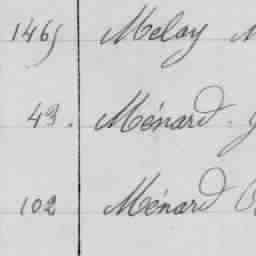 1465 Melay
43. Ménard
102 Ménard